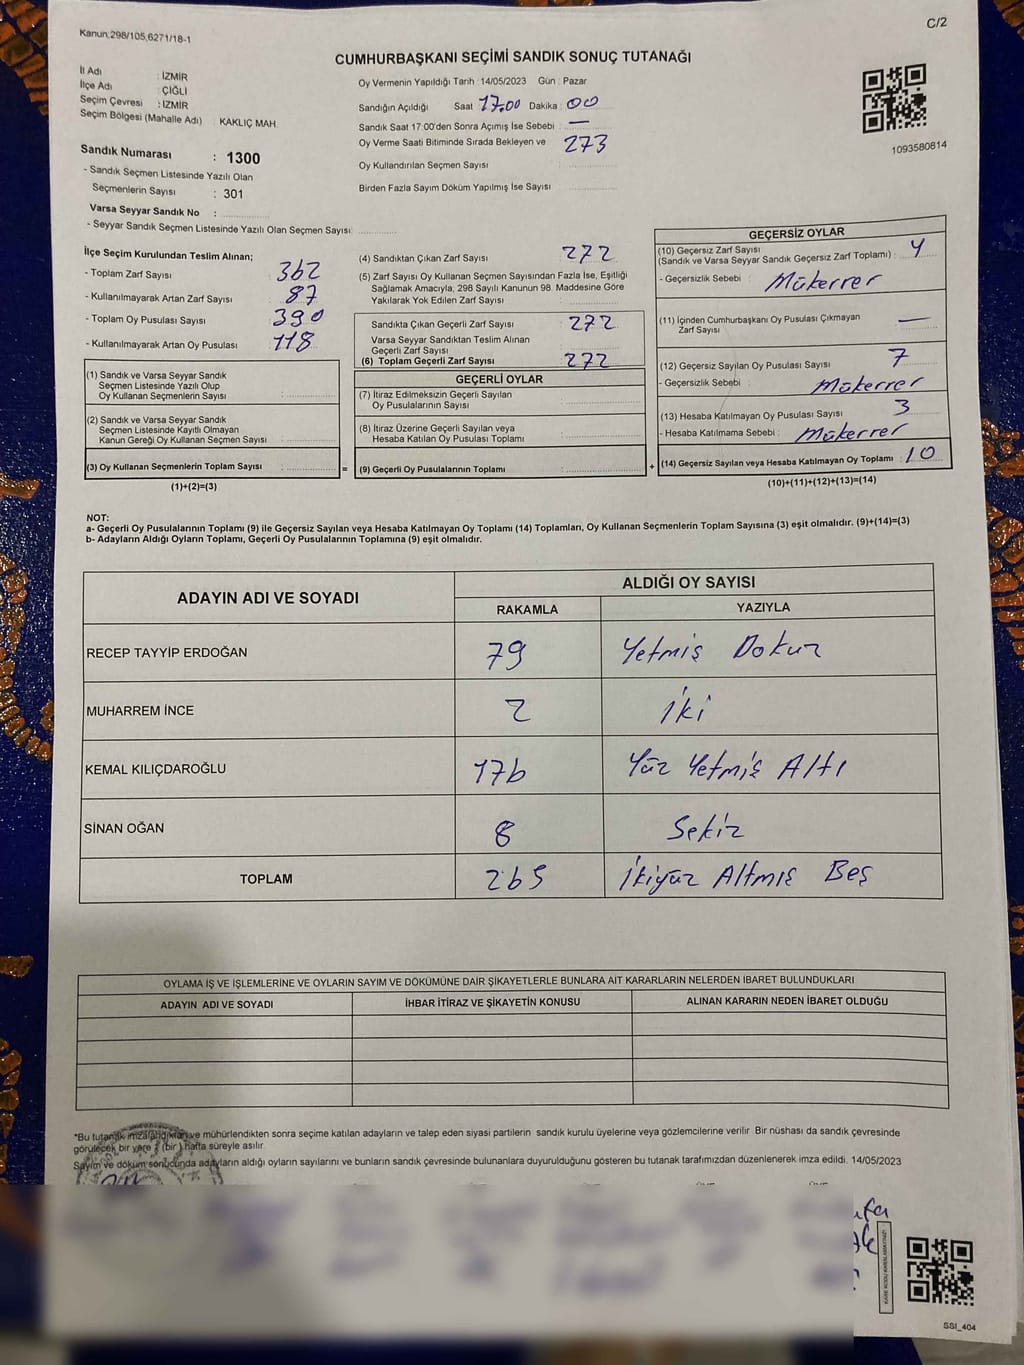 Kanun,298/105,6271/18-1
C/2
CUMHURBAŞKANI SEÇİMİ SANDIK SONUÇ TUTANAĞI
İl Adı : İZMİR
İlçe Adı : ÇİĞLİ
Seçim Çevresi : İZMİR
Seçim Bölgesi (Mahalle Adı) : KAKLIÇ MAH.
Sandık Numarası : 1300
- Sandık Seçmen Listesinde Yazılı Olan
Seçmenlerin Sayısı : 301
Varsa Seyyar Sandık No :
- Seyyar Sandık Seçmen Listesinde Yazılı Olan Seçmen Sayısı:
Oy Vermenin Yapıldığı Tarih : 14/05/2023 Gün : Pazar
Sandığın Açıldığı Saat 17.00 Dakika : 00
Sandık Saat 17:00'den Sonra Açımış İse Sebebi : —
Oy Verme Saati Bitiminde Sırada Bekleyen ve 273
Oy Kullandırılan Seçmen Sayısı
Birden Fazla Sayım Döküm Yapılmış İse Sayısı
1093580814
İlçe Seçim Kurulundan Teslim Alınan;
- Toplam Zarf Sayısı : 362
- Kullanılmayarak Artan Zarf Sayısı : 87
- Toplam Oy Pusulası Sayısı : 390
- Kullanılmayarak Artan Oy Pusulası : 118
(1) Sandık ve Varsa Seyyar Sandık
Seçmen Listesinde Yazılı Olup
Oy Kullanan Seçmenlerin Sayısı :
(2) Sandık ve Varsa Seyyar Sandık
Seçmen Listesinde Kayıtlı Olmayan
Kanun Gereği Oy Kullanan Seçmen Sayısı :
(3) Oy Kullanan Seçmenlerin Toplam Sayısı : =
(1)+(2)=(3)
(4) Sandıktan Çıkan Zarf Sayısı : 272
(5) Zarf Sayısı Oy Kullanan Seçmen Sayısından Fazla İse, Eşitliği
Sağlamak Amacıyla, 298 Sayılı Kanunun 98. Maddesine Göre
Yakılarak Yok Edilen Zarf Sayısı :
Sandıkta Çıkan Geçerli Zarf Sayısı : 272
Varsa Seyyar Sandıktan Teslim Alınan
Geçerli Zarf Sayısı :
(6) Toplam Geçerli Zarf Sayısı : 272
GEÇERLİ OYLAR
(7) İtiraz Edilmeksizin Geçerli Sayılan
Oy Pusulalarının Sayısı :
(8) İtiraz Üzerine Geçerli Sayılan veya
Hesaba Katılan Oy Pusulası Toplamı :
(9) Geçerli Oy Pusulalarının Toplamı : +
GEÇERSİZ OYLAR
(10) Geçersiz Zarf Sayısı
(Sandık ve Varsa Seyyar Sandık Geçersiz Zarf Toplamı) : 4
- Geçersizlik Sebebi : Mükerrer
(11) İçinden Cumhurbaşkanı Oy Pusulası Çıkmayan
Zarf Sayısı : —
(12) Geçersiz Sayılan Oy Pusulası Sayısı : 7
- Geçersizlik Sebebi : Mükerrer
(13) Hesaba Katılmayan Oy Pusulası Sayısı : 3
- Hesaba Katılmama Sebebi : Mükerrer
(14) Geçersiz Sayılan veya Hesaba Katılmayan Oy Toplamı : 10
(10)+(11)+(12)+(13)=(14)
NOT:
a- Geçerli Oy Pusulalarının Toplamı (9) ile Geçersiz Sayılan veya Hesaba Katılmayan Oy Toplamı (14) Toplamları, Oy Kullanan Seçmenlerin Toplam Sayısına (3) eşit olmalıdır. (9)+(14)=(3)
b- Adayların Aldığı Oyların Toplamı, Geçerli Oy Pusulalarının Toplamına (9) eşit olmalıdır.
ADAYIN ADI VE SOYADI ALDIĞI OY SAYISI
RAKAMLA YAZIYLA
RECEP TAYYİP ERDOĞAN 79 Yetmiş Dokuz
MUHARREM İNCE 2 İki
KEMAL KILIÇDAROĞLU 176 Yüz Yetmiş Altı
SİNAN OĞAN 8 Sekiz
TOPLAM 265 İkiyüz Altmış Beş
OYLAMA İŞ VE İŞLEMLERİNE VE OYLARIN SAYIM VE DÖKÜMÜNE DAİR ŞİKAYETLERLE BUNLARA AİT KARARLARIN NELERDEN İBARET BULUNDUKLARI
ADAYIN ADI VE SOYADI İHBAR İTİRAZ VE ŞİKAYETİN KONUSU ALINAN KARARIN NEDEN İBARET OLDUĞU
*Bu tutanak imzalandıktan ve mühürlendikten sonra seçime katılan adayların ve talep eden siyasi partilerin sandık kurulu üyelerine veya gözlemcilerine verilir. Bir nüshası da sandık çevresinde
görülecek bir yere 1 (bir) hafta süreyle asılır.
Sayım ve döküm sonucunda adayların aldığı oyların sayılarını ve bunların sandık çevresinde bulunanlara duyurulduğunu gösteren bu tutanak tarafımızdan düzenlenerek imza edildi. 14/05/2023
SSI_404